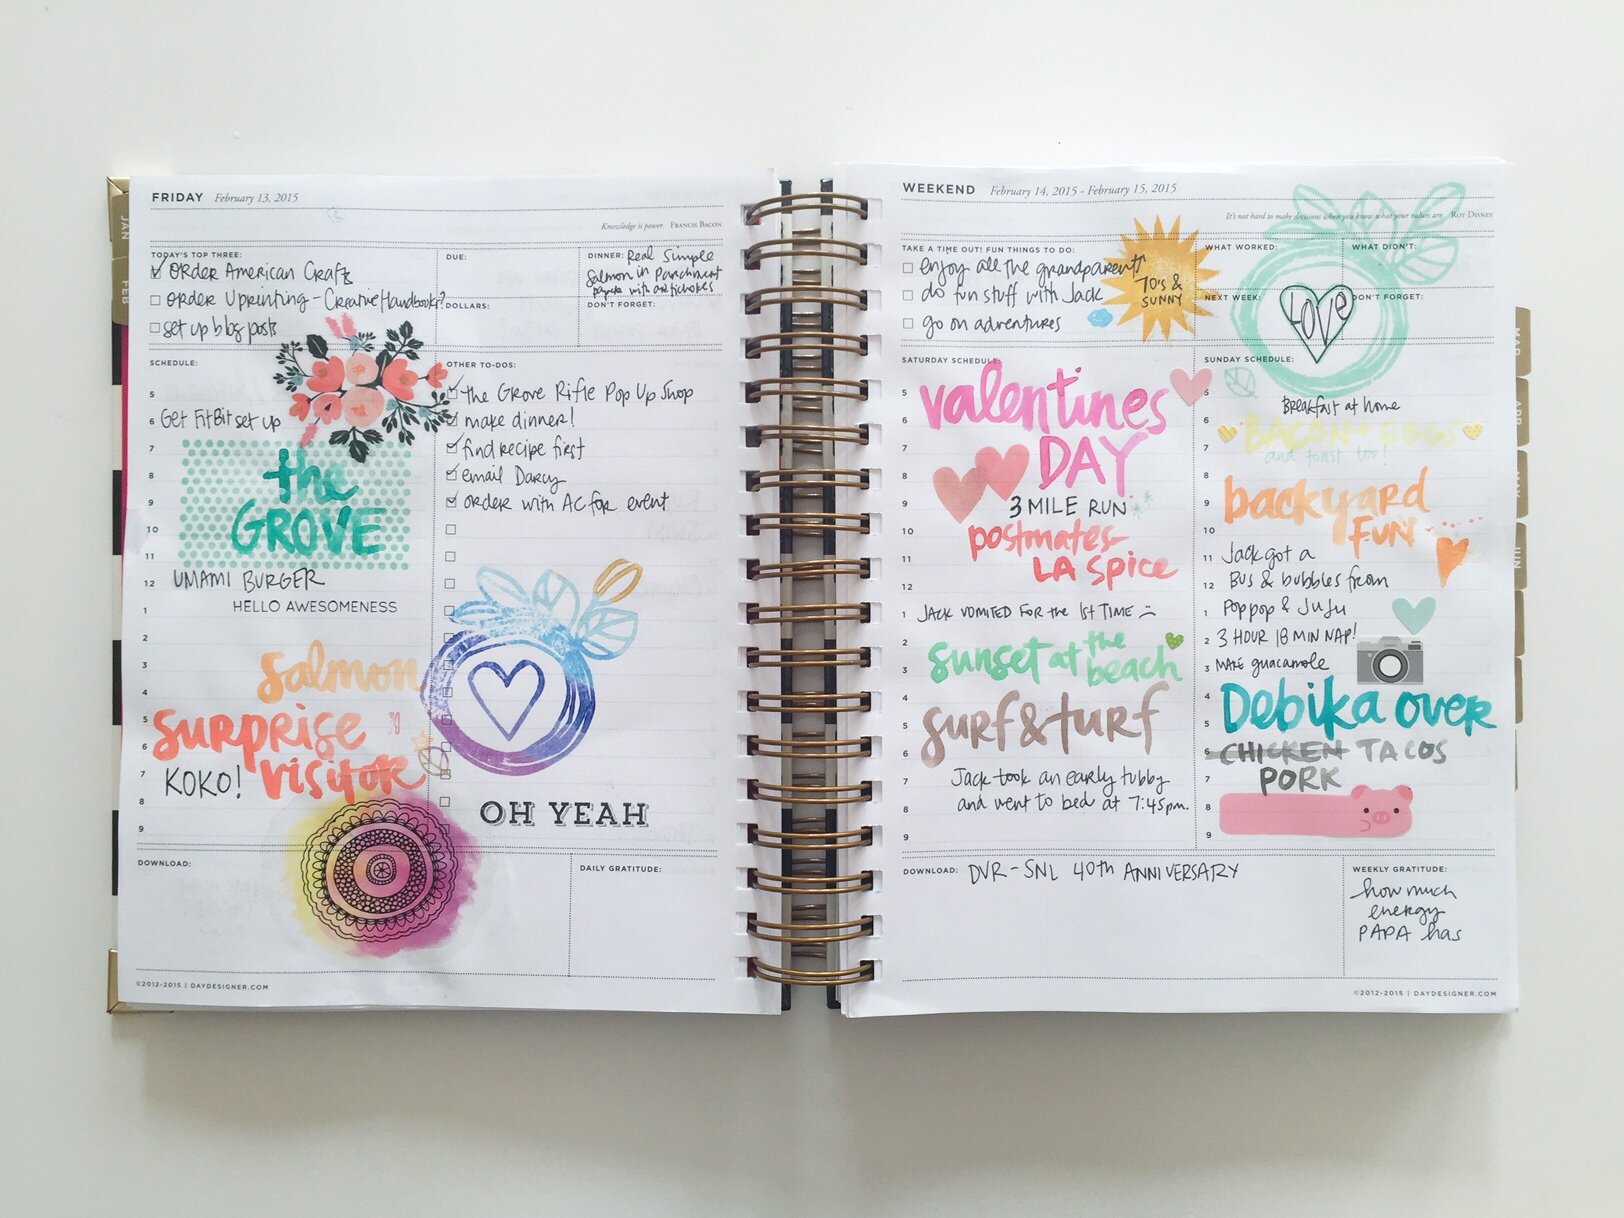 JAN
FEB
FRIDAY February 13, 2015
Knowledge is power. FRANCIS BACON
TODAY'S TOP THREE:
ORDER AMERICAN CRAFTS
ORDER UPRINTING - CREATIVE HANDBOOKS?
set up blog posts
DUE:
DOLLARS:
DINNER: Real Simple
Salmon in Parchment
paper with artichokes
DON'T FORGET:
SCHEDULE:
5
6 GET FITBIT set up
7
8
9
10
11
12
1
2
3
4
5
6
7
8
9
the
GROVE
UMAMI BURGER
HELLO AWESOMENESS
salmon
surprise
visitor
KOKO!
OTHER TO-DOS:
the Grove Rifle Pop Up Shop
make dinner!
find recipe first
email Darcy
order with AC for event
OH YEAH
DOWNLOAD:
DAILY GRATITUDE:
©2012-2015 | DAYDESIGNER.COM
WEEKEND February 14, 2015 - February 15, 2015
It's not hard to make decisions when you know what your values are. ROY DISNEY
TAKE A TIME OUT! FUN THINGS TO DO:
enjoy all the grandparents
do fun stuff with Jack
go on adventures
70's &
SUNNY
WHAT WORKED:
WHAT DIDN'T:
NEXT WEEK:
DON'T FORGET:
LOVE
SATURDAY SCHEDULE:
5
6
7
8
9
10
11
12
1
2
3
4
5
6
7
8
9
valentines
DAY
3 MILE RUN
postmates-
LA spice
JACK VOMITED FOR the 1ST TIME
sunset at the
beach
surf & turf
Jack took an early tubby
and went to bed at 7:45pm.
SUNDAY SCHEDULE:
5
6
7
8
9
10
11
12
1
2
3
4
5
6
7
8
9
Breakfast at home
BACON + EGGS
and toast too!
backyard
FUN
Jack got a
Bus & bubbles from
Poppop & JuJu
3 HOUR 18 MIN NAP!
MAKE guacamole
Debika over
CHICKEN TACOS
PORK
DOWNLOAD: DVR - SNL 40th ANNIVERSARY
WEEKLY GRATITUDE:
how much
energy
PAPA has
©2012-2015 | DAYDESIGNER.COM
MAR
APR
MAY
JUN